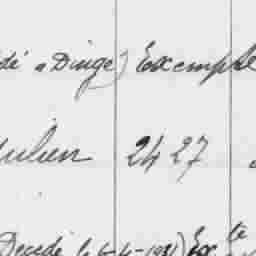 dé a Dinge) Exemple
Julien 24 27
Decede le 6-4-1931) Ex te